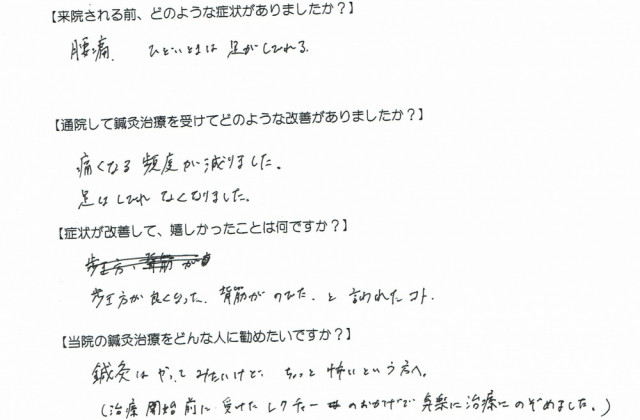 【来院される前、どのような症状がありましたか？】
腰痛、ひどいときは足がしびれる。
【通院して鍼灸治療を受けてどのような改善がありましたか？】
痛くなる頻度が減りました。
足はしびれなくなりました。
【症状が改善して、嬉しかったことは何ですか？】
歩き方、背筋が
歩き方が良くなった、背筋がのびた、と言われたコト。
【当院の鍼灸治療をどんな人に勧めたいですか？】
鍼灸はやってみたいけど、ちょっと怖いという方へ。
(治療開始前に受けたレクチャーのおかげで気楽に治療にのぞめました。)